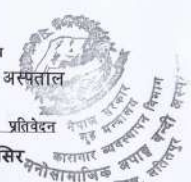 अस्पताल
प्रतिवेदन
सिर
नेपाल सरकार
गृह मन्त्रालय
कारागार व्यवस्थापन विभाग
मनोसामाजिक अपाङ्ग बन्दी
ललितपुर